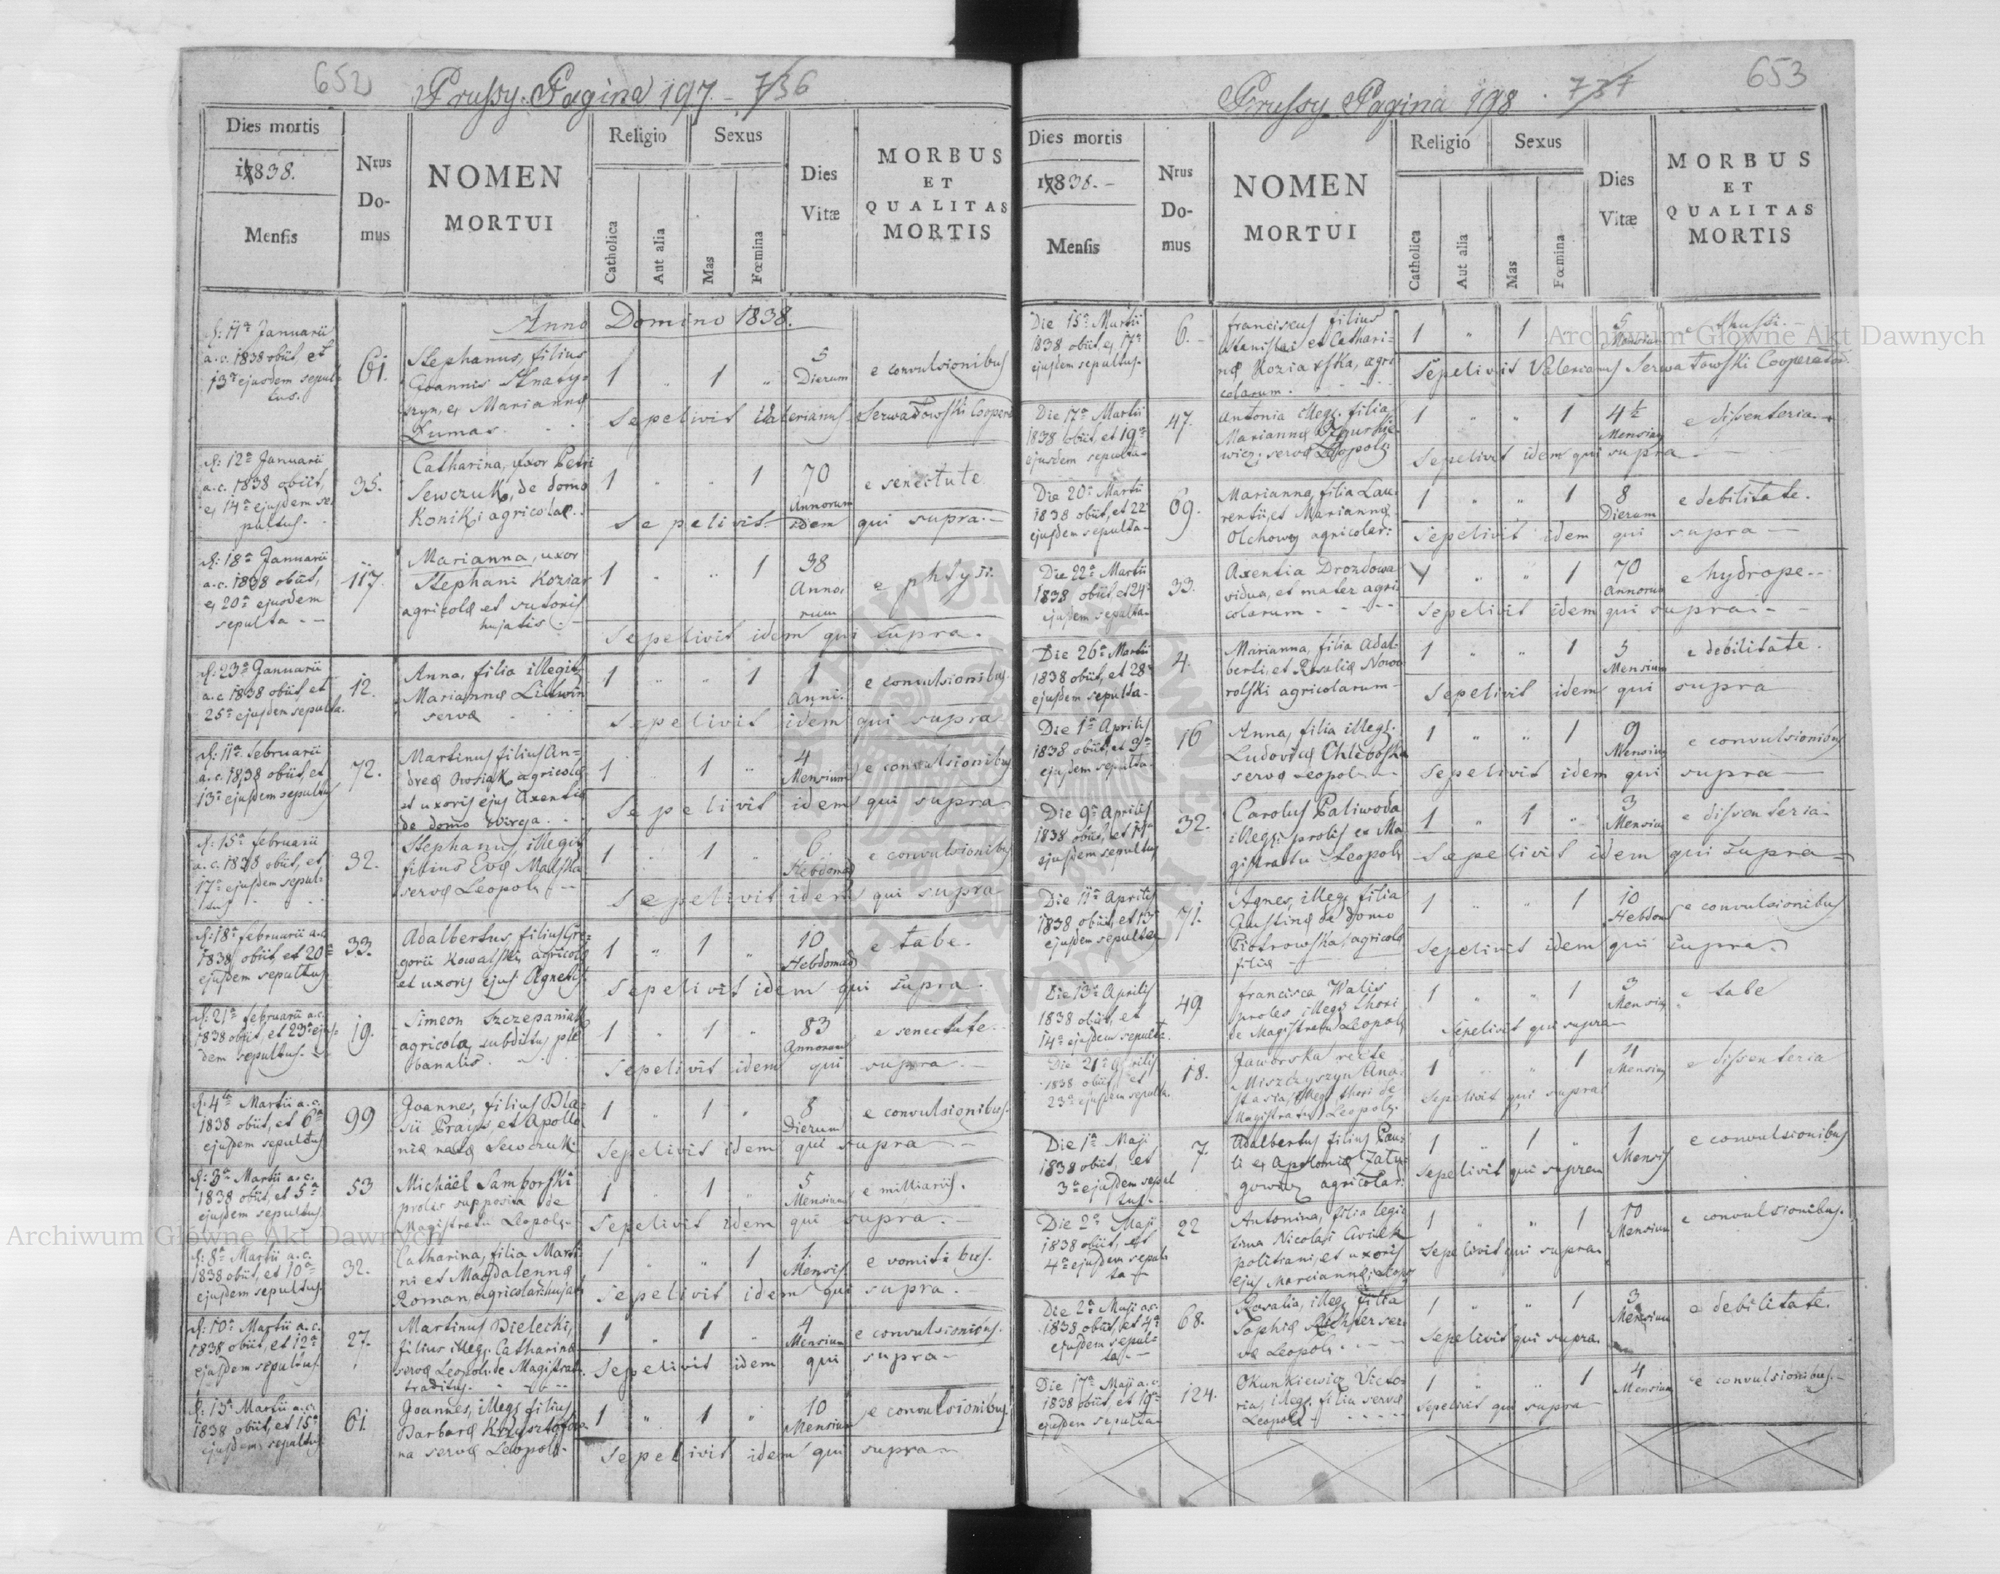 652
Prussy. Pagina 197. 736
Dies mortis
1838.
Mensis
Nrus
Do-
mus
NOMEN
MORTUI
Religio
Catholica
Aut alia
Sexus
Mas
Fœmina
Dies
Vitæ
MORBUS
ET
QUALITAS
MORTIS
Anno Domino 1838.
d: 11a Januarii
a.c. 1838 obiit, et
13a ejusdem sepul-
tus.
61.
Stephanus, filius
Joannis
et Marianna
Lumas.
1 " 1 "
5
Dierum
e convulsionibus
Sepelivit Valerianus Serwatowski Cooperat
d: 12a Januarii
a.c. 1838 obiit,
et 14a ejusdem se-
pultus.
35.
Catharina, uxor Petri
Sewczuk, de domo
Koniki agricolae.
1 " " 1
70
Annorum
e senectute
Sepelivit idem qui supra.
d: 18a Januarii
a.c. 1838 obiit,
et 20a ejusdem
sepulta
117.
Marianna, uxor
Stephani Koziar
agricolæ et sutoris
hujatis.
1 " " 1
38
Anno-
rum
e phtysi.
Sepelivit idem qui supra.
d: 23a Januarii
a.c. 1838 obiit, et
25a ejusdem sepulta.
12.
Anna, filia illegit:
Mariannæ Littwin
servæ
1 " " 1
1
Anni.
e convulsionibus
Sepelivit idem qui supra
d: 11a februarii
a.c. 1838 obiit, et
13a ejusdem sepultus
72.
Martinus filius An-
dreæ agricolæ
et uxoris ejus Axentiæ
de domo
1 " 1 "
4
Mensium
e convulsionibus
Sepelivit idem qui supra
d: 15a februarii
a.c. 1838 obiit, et
17a ejusdem sepul-
tus
32.
Stephanus illegit:
filius Evæ Malska
servæ Leopol:
1 " 1 "
6
Hebdomad
e convulsionibus
Sepelivit idem qui supra
d: 18a februarii a.c.
1838 obiit, et 20a
ejusdem sepultus.
33.
Adalbertus, filius Gre-
gorii Kowalski, agricolæ
et uxoris ejus Agnetis
1 " 1 "
10
Hebdomad
e tabe.
Sepelivit idem qui supra.
d: 21a februarii a.c.
1838 obiit, et 23a ejus-
dem sepultus.
19.
Simeon Szczepaniak
agricola, subditus ple-
banalis.
1 " 1 "
83
Annorum
e senectute.
Sepelivit idem qui supra.
d: 4ta Martii a.c.
1838 obiit, et 6ta
ejusdem sepultus
99
Joannes, filius Bla-
sii et Apollo-
niæ natæ Sewczuk.
1 " 1 "
8
Dierum
e convulsionibus.
Sepelivit idem qui supra
d: 3a Martii a.c.
1838 obiit, et 5a
ejusdem sepultus
53
Michäel Samborski
prolis supposita de
Magistratu Leopol.
1 " 1 "
5
Mensium
e milliariis.
Sepelivit idem qui supra.
d: 8a Martii a.c.
1838 obiit, et 10a
ejusdem sepultus.
32.
Catharina, filia Marti-
ni et Magdalennæ
Roman, agricolar: hujat:
1 " " 1
1
Mensis
e vomitibus.
Sepelivit idem qui supra.
d: 10a Martii a.c.
1838 obiit, et 12a
ejusdem sepultus
27.
Martinus Bielecki,
filius illeg: Catharinæ
servæ Leopol: de Magistrat:
traditus.
1 " 1 "
4
Mensium
e convulsionibus.
Sepelivit idem qui supra
d: 13a Martii a.c.
1838 obiit, et 15a
ejusdem sepultus
61.
Joannes, illeg: filius
Barbaræ Krzysztofow
na servæ Leopol.
1 " 1 "
10
Mensium
e convulsionibus.
Sepelivit idem qui supra
653
Prussy. Pagina 198. 737
Dies mortis
1838.
Mensis
Nrus
Do-
mus
NOMEN
MORTUI
Religio
Catholica
Aut alia
Sexus
Mas
Fœmina
Dies
Vitæ
MORBUS
ET
QUALITAS
MORTIS
Die 15a Martii
1838 obiit, et 17a
ejusdem sepultus.
6.
franciscus filius
Stanislai et Cathari-
næ Koziarska, agri-
colarum.
1 " 1
5
Mensium
e thussi.
Sepelivit Valerianus Serwatowski Cooperator
Die 17a Martii
1838 obiit, et 19a
ejusdem sepulta
47.
Antonia illeg: filia
Mariannæ
servæ Leopol:
1 " " 1
4½
Mensium
e dissenteria.
Sepelivit idem qui supra
Die 20a Martii
1838 obiit, et 22
ejusdem sepulta
69.
Marianna, filia Lau-
rentii, et Mariannæ
Olchowy agricolar:
1 " " 1
8
Dierum
e debilitate.
Sepelivit idem qui supra
Die 22a Martii
1838 obiit, et 24a
ejusdem sepulta
33.
Axentia Drozdowa
vidua, et mater agri-
colarum
1 " " 1
70
Annorum
e hydrope.
Sepelivit idem qui supra
Die 26a Martii
1838 obiit, et 28a
ejusdem sepulta
4.
Marianna, filia Adal-
berti, et Rosaliæ Nowo-
rolski agricolarum
1 " " 1
5
Mensium
e debilitate.
Sepelivit idem qui supra
Die 1a Aprilis
1838 obiit, et 3a
ejusdem sepulta.
16
Anna, filia illeg:
Ludovicæ Chlebofska
servæ Leopol:
1 " " 1
9
Mensium
e convulsionibus
Sepelivit idem qui supra
Die 9a Aprilis
1838 obiit, et 11a
ejusdem sepultus
32.
Carolus Paliwoda
illeg: prolis ex Ma-
gistratu Leopol:
1 " 1 "
3
Mensium
e dissenteria
Sepelivit idem qui supra
Die 11a Aprilis
1838 obiit, et 13a
ejusdem sepulta
71.
Agnes, illeg: filia
Justinæ de domo
Piotrowska, agricolæ
filiæ
1 " " 1
10
Hebdom
e convulsionibus
Sepelivit idem qui supra.
Die 13a Aprilis
1838 obiit, et
14a ejusdem sepulta.
49
francisca Walis
proles illegi: thori
de Magistratu Leopol:
1 " " 1
3
Mensium
e tabe
Sepelivit qui supra
Die 21a Aprilis
1838 obiit, et
23a ejusdem sepulta.
18.
Jaworska recte
Miszczyszyn Ana-
stasia, illeg: thori de
Magistratu Leopol:
1 " " 1
4
Mensium
e dissenteria
Sepelivit qui supra
Die 1a Maji
1838 obiit, et
3a ejusdem sepul-
tus.
7.
Adalbertus filius Pau-
li et Apoloniæ
agricolar:
1 " 1 "
1
Mensis
e convulsionibus
Sepelivit qui supra
Die 2a Maji
1838 obiit, et
4a ejusdem sepul-
ta
22
Antonina, filia legi-
tima Nicolai
et uxoris
ejus Mariannæ, Leopol
1 " " 1
10
Mensium
e convulsionibus.
Sepelivit qui supra.
Die 2a Maji a.c.
1838 obiit, et 4a
ejusdem sepul-
ta
68.
Rosalia, illeg: filia
Sophiæ ser-
væ Leopol:
1 " " 1
3
Mensium
e debilitate.
Sepelivit qui supra.
Die 17a Maji a.c.
1838 obiit, et 19a
ejusdem sepulta
124.
Okunkiewicz Victo-
ria, illeg: filia servæ
Leopol:
1 " " 1
4
Mensium
e convulsionibus.
Sepelivit qui supra
Archiwum Główne Akt Dawnych
Archiwum Główne Akt Dawnych